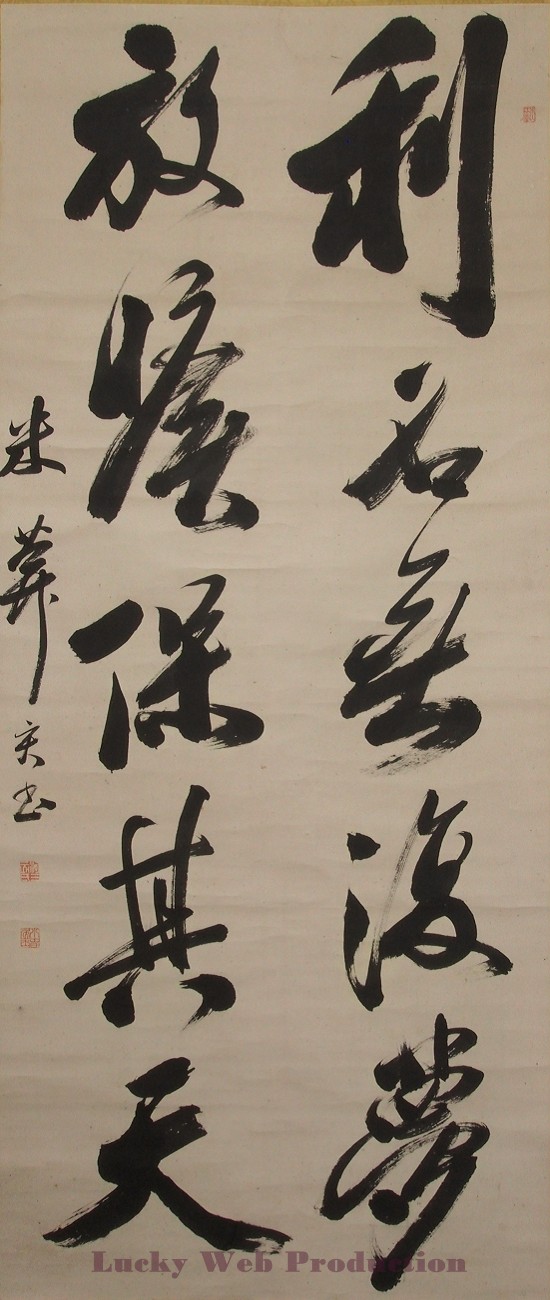 利名無復夢
放保其天
米葊亥書
Lucky Web Production